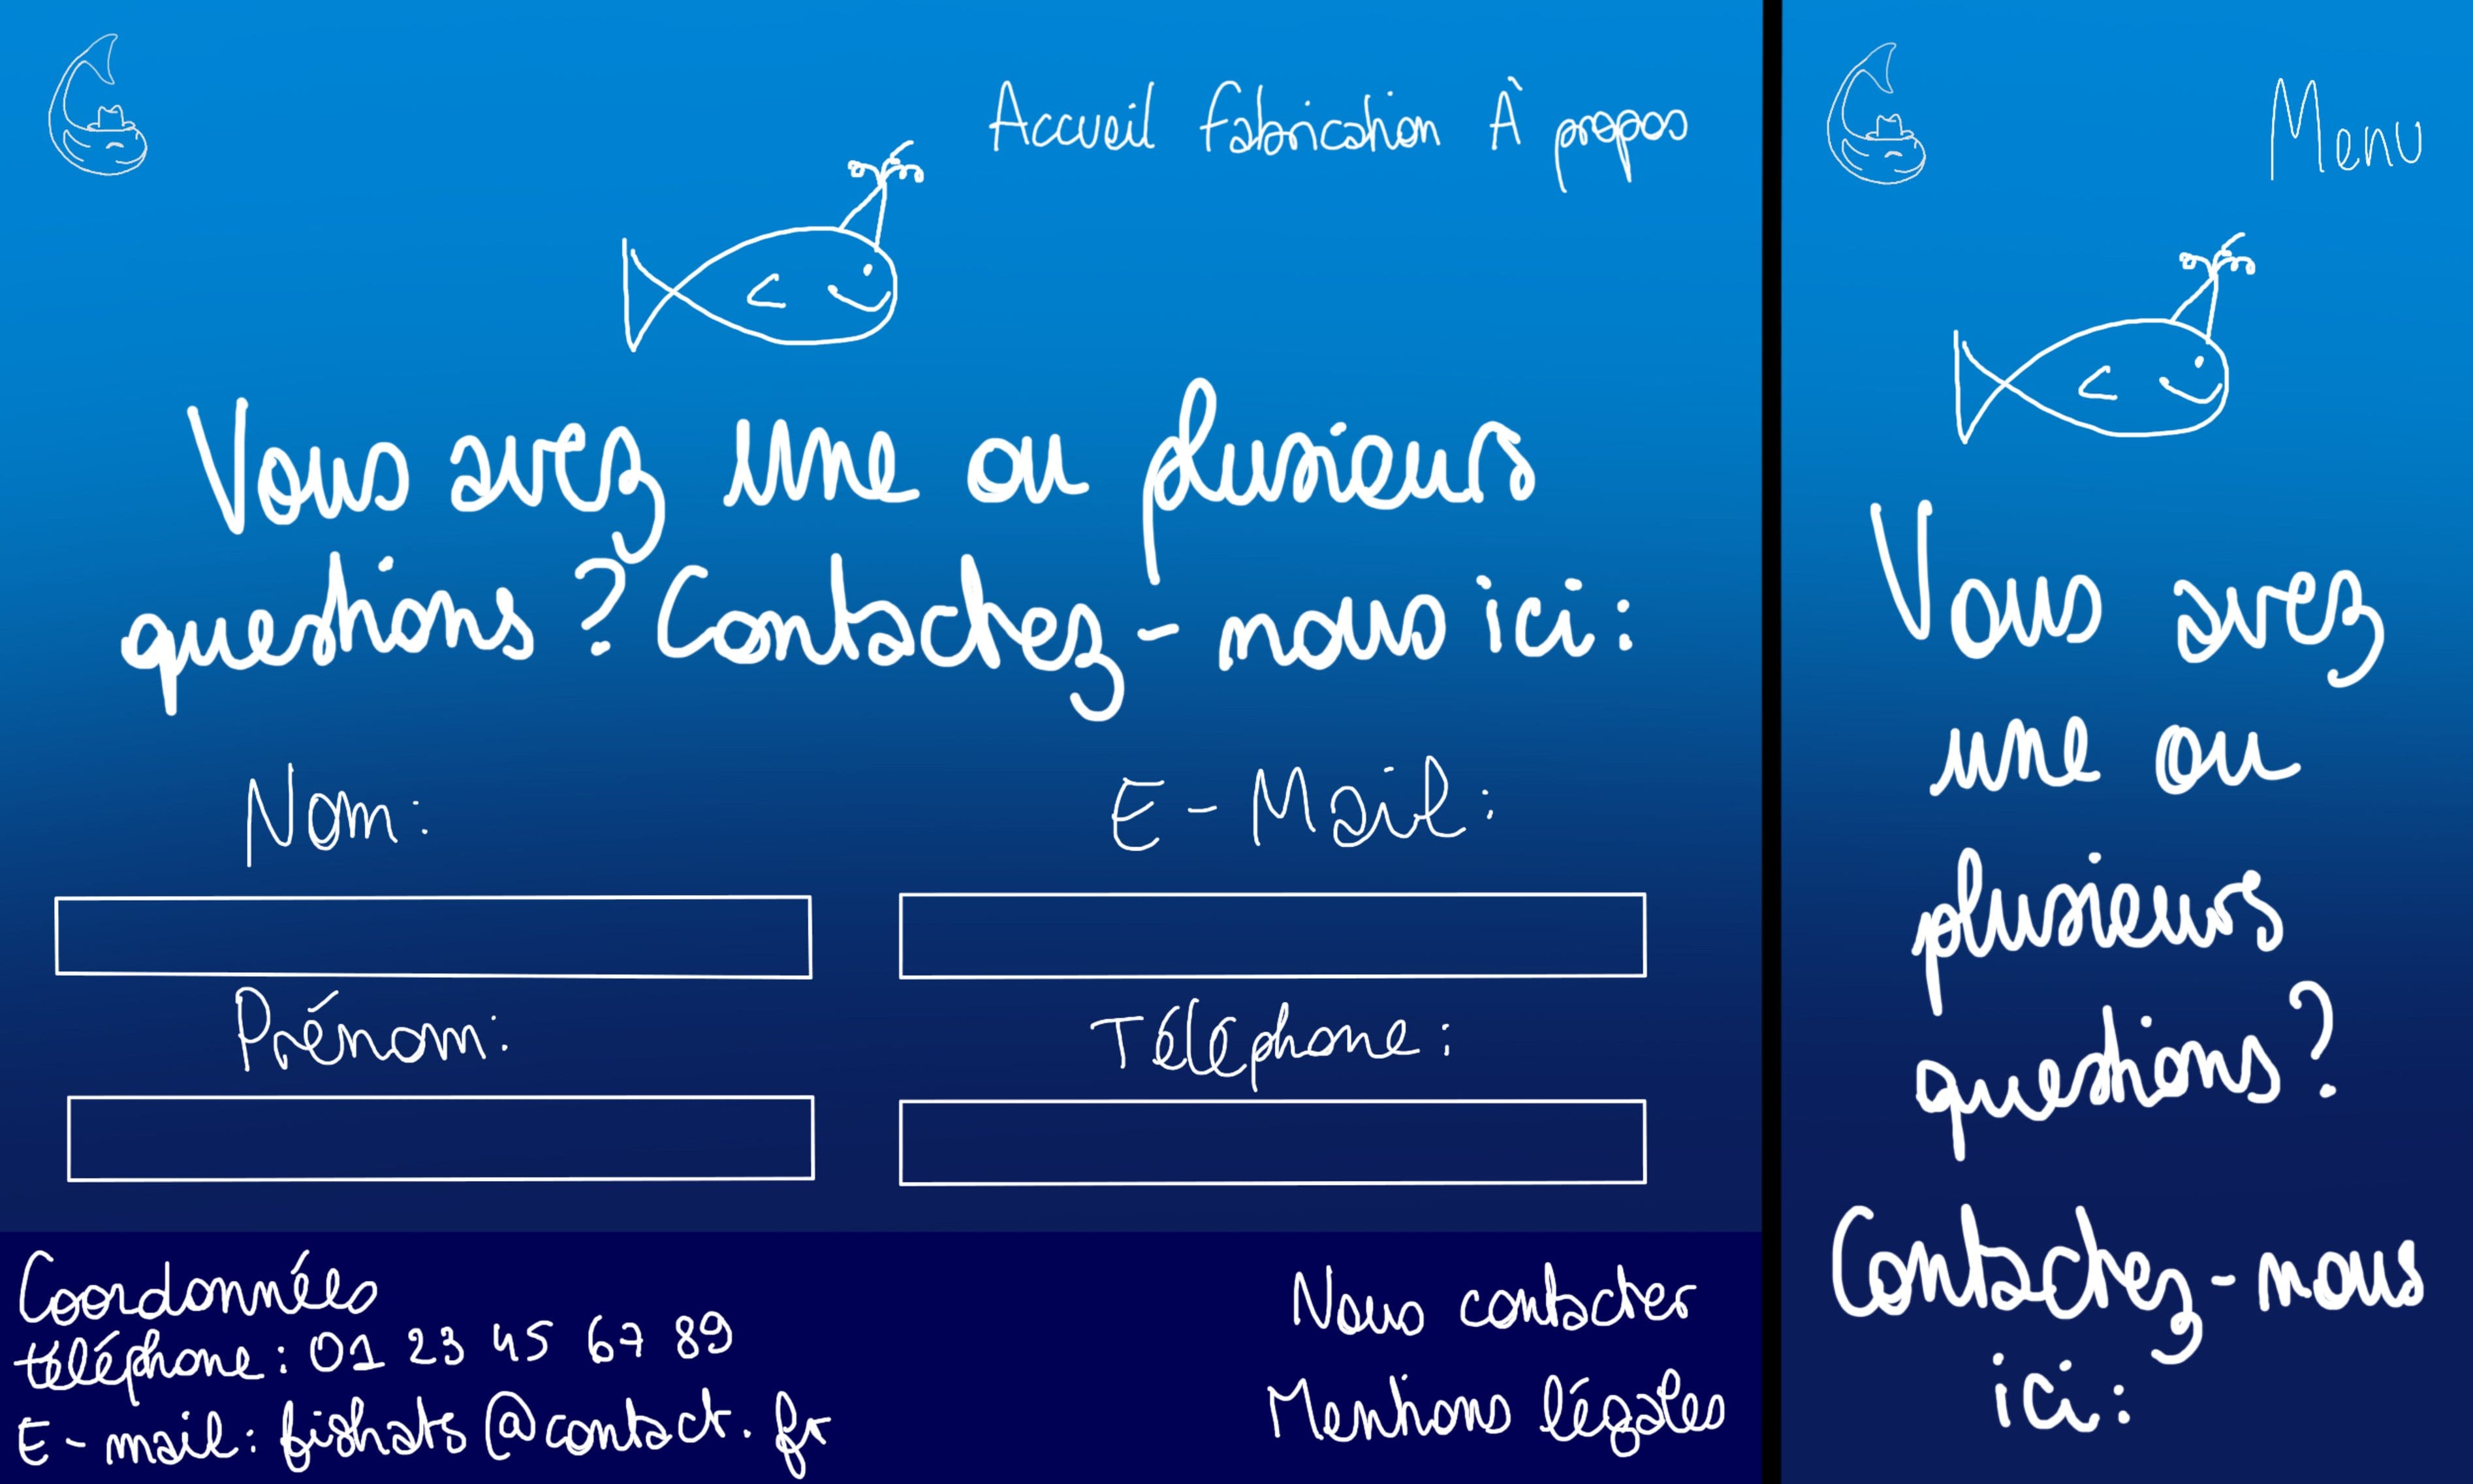 Accueil Fabrication À propos
Vous avez une ou plusieurs
questions ? Contactez-nous ici :
Nom :
E-Mail :
Prénom :
Téléphone :
Coordonnées
téléphone : 01 23 45 67 89
E-mail : fishats@contact.fr
Nous contacter
Mentions légales
Menu
Vous avez
une ou
plusieurs
questions ?
Contactez-nous
ici :